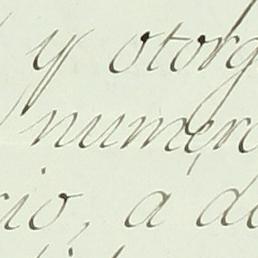 y otorg
numero
rio, a de